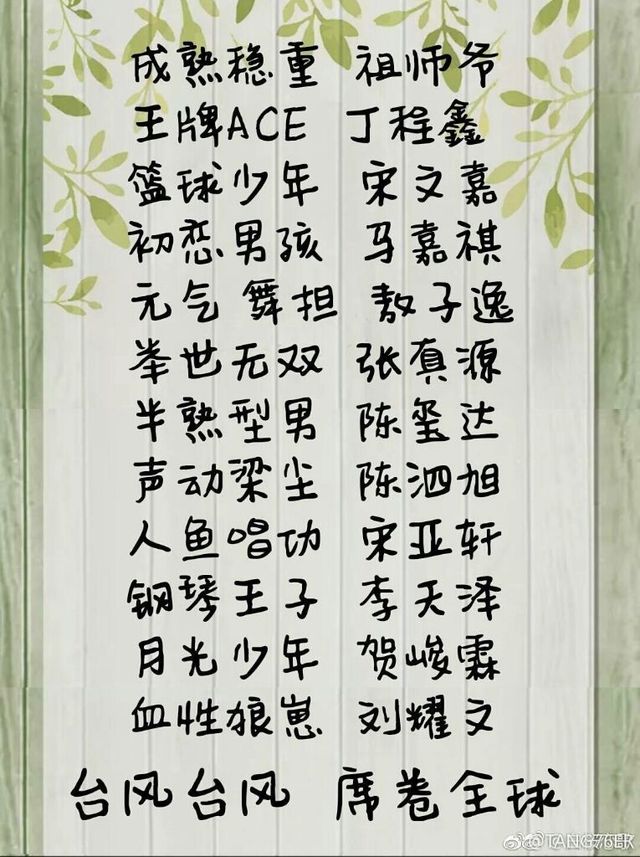 成熟稳重 祖师爷
王牌ACE 丁程鑫
篮球少年 宋文嘉
初恋男孩 马嘉祺
元气舞担 敖子逸
举世无双 张真源
半熟型男 陈玺达
声动梁尘 陈泗旭
人鱼唱功 宋亚轩
钢琴王子 李天泽
月光少年 贺峻霖
血性狼崽 刘耀文
台风台风 席卷全球